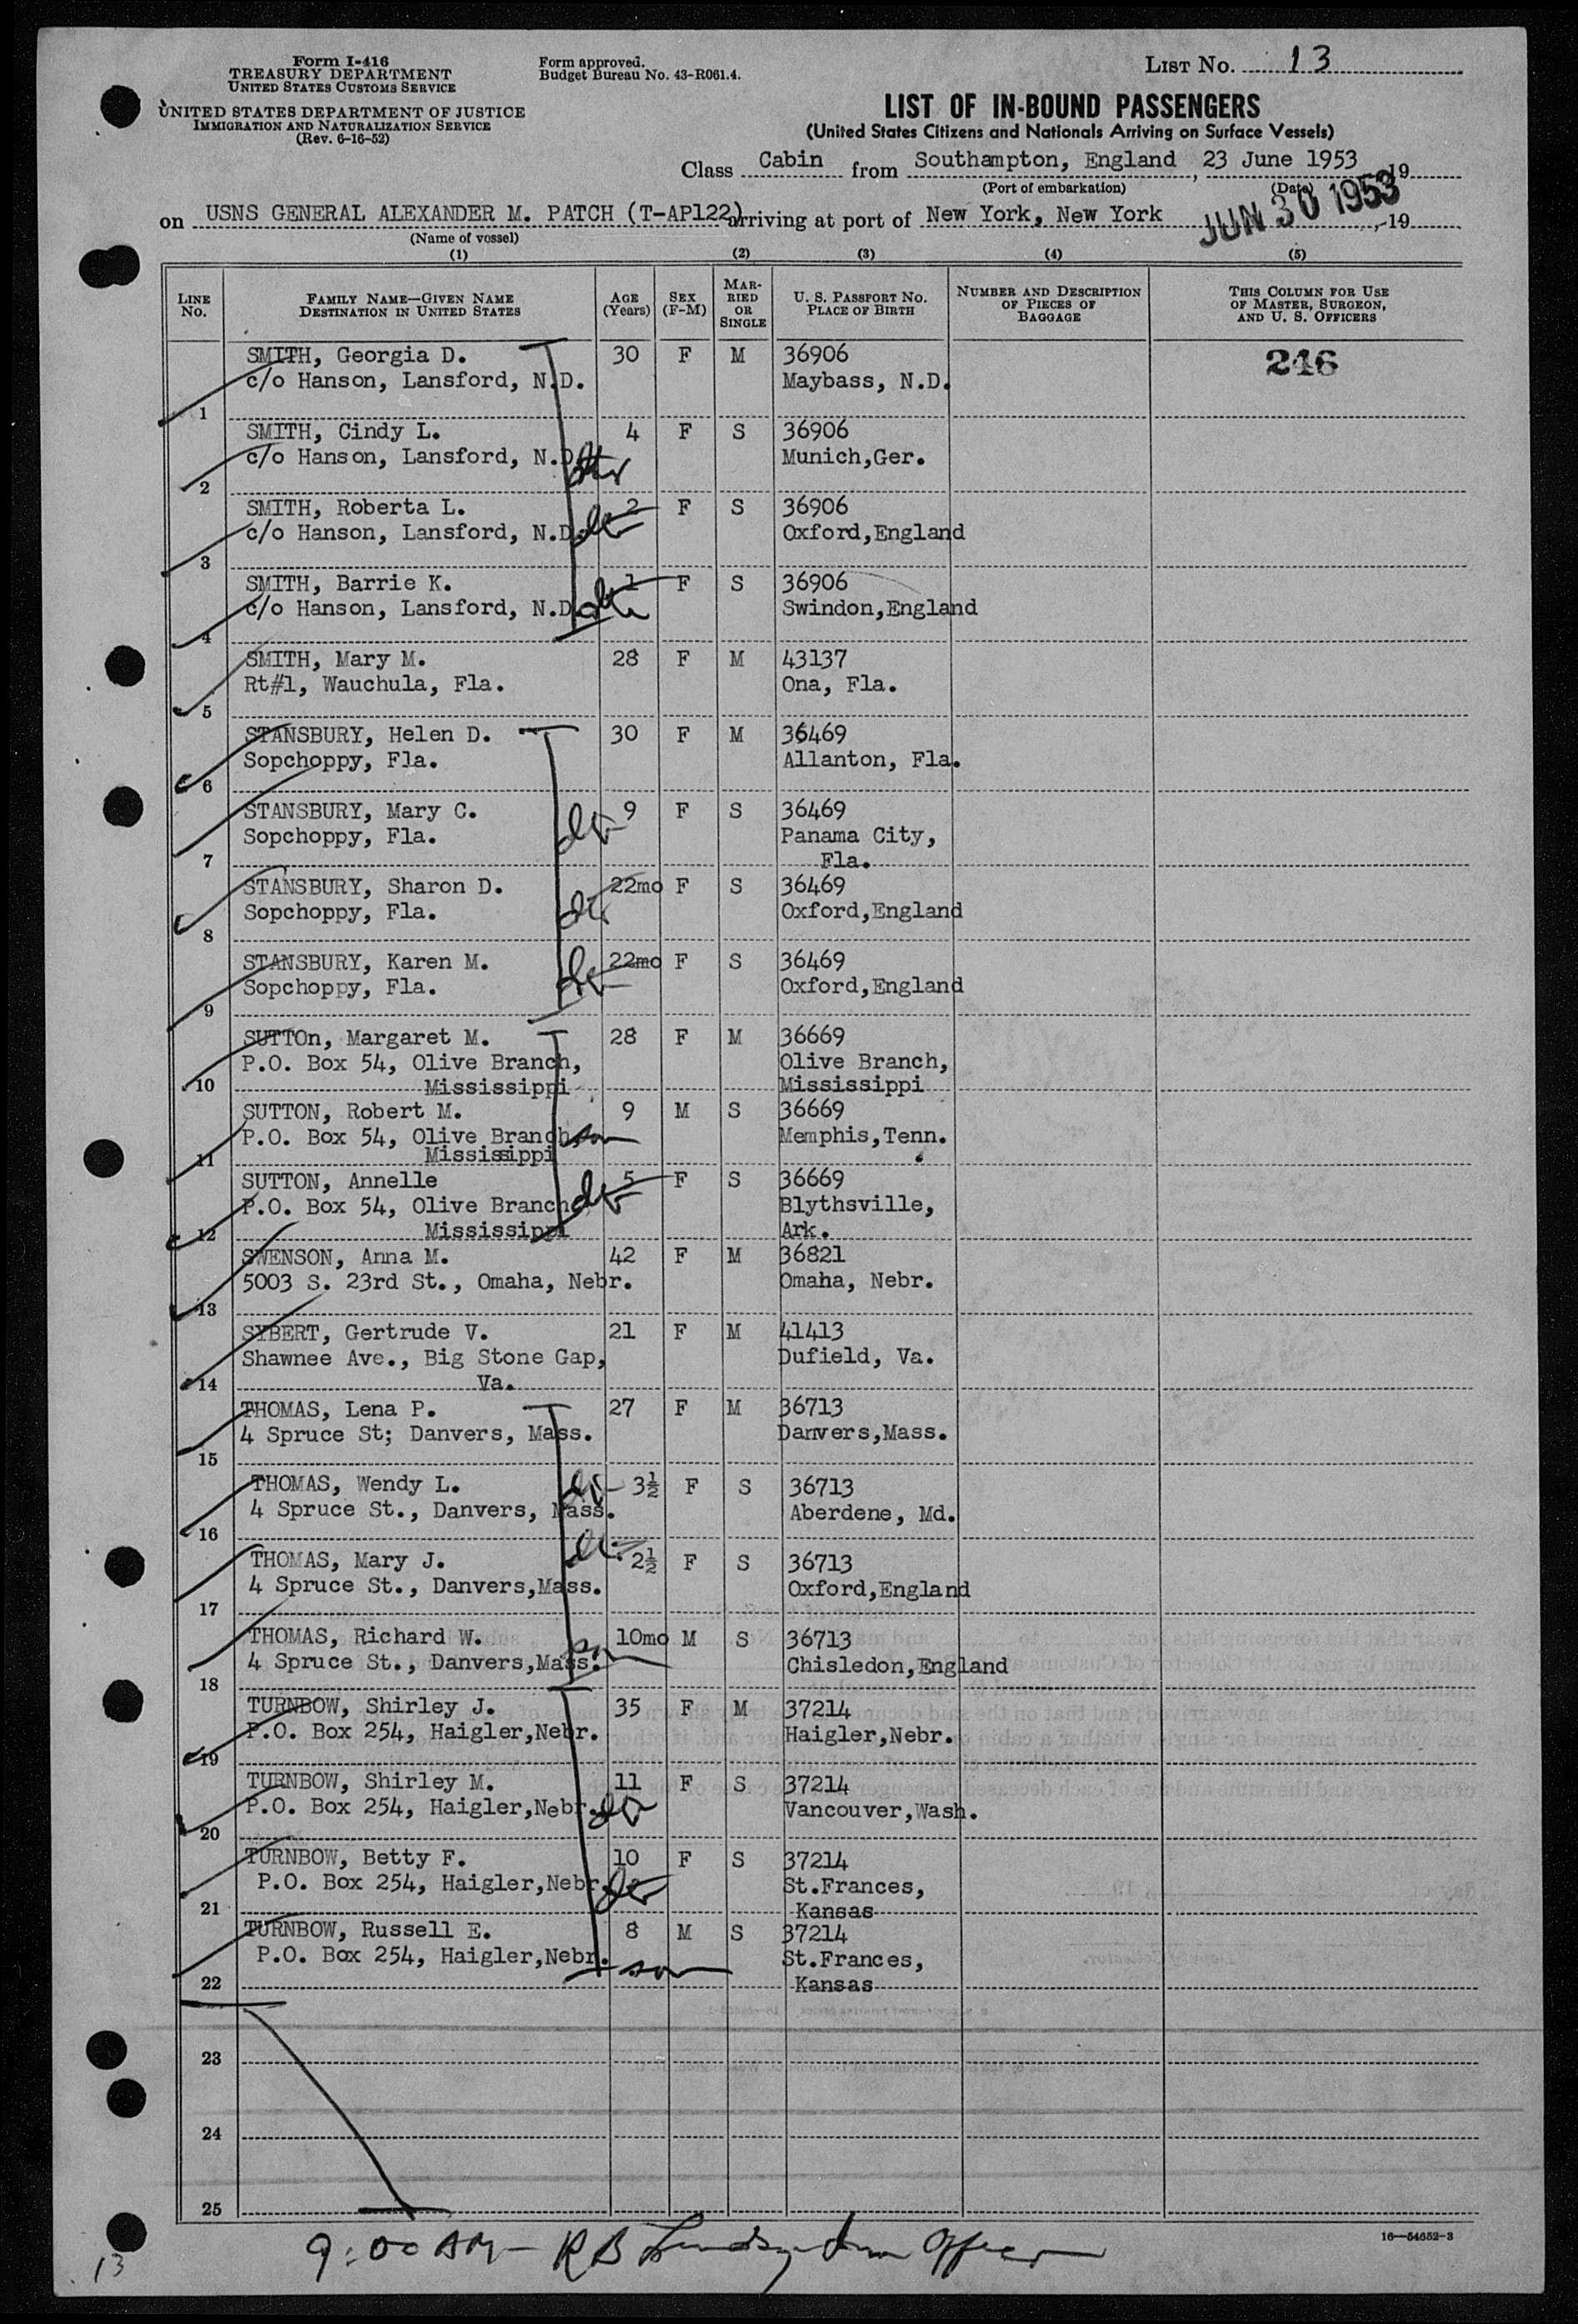 Form I-416
TREASURY DEPARTMENT
UNITED STATES CUSTOMS SERVICE
UNITED STATES DEPARTMENT OF JUSTICE
IMMIGRATION AND NATURALIZATION SERVICE
(Rev. 6-16-52)
Form approved.
Budget Bureau No. 43-R061.4.
LIST NO. 13
LIST OF IN-BOUND PASSENGERS
(United States Citizens and Nationals Arriving on Surface Vessels)
Class Cabin from Southampton, England, 23 June 1953, 19
(Port of embarkation) (Date)
on USNS GENERAL ALEXANDER M. PATCH (T-AP122) arriving at port of New York, New York JUN 30 1953, 19
(Name of vessel)
(1) (2) (3) (4) (5)
LINE NO. FAMILY NAME—GIVEN NAME DESTINATION IN UNITED STATES AGE (Years) SEX (F-M) MARRIED OR SINGLE U. S. PASSPORT NO. PLACE OF BIRTH NUMBER AND DESCRIPTION OF PIECES OF BAGGAGE THIS COLUMN FOR USE OF MASTER, SURGEON, AND U. S. OFFICERS
SMITH, Georgia D. 30 F M 36906 246
c/o Hanson, Lansford, N.D. Maybass, N.D.
1
SMITH, Cindy L. 4 F S 36906
c/o Hanson, Lansford, N.D. Munich,Ger.
2
SMITH, Roberta L. 2 F S 36906
c/o Hanson, Lansford, N.D. Oxford,England
3
SMITH, Barrie K. 1 F S 36906
c/o Hanson, Lansford, N.D. Swindon,England
4
SMITH, Mary M. 28 F M 43137
Rt#1, Wauchula, Fla. Ona, Fla.
5
STANSBURY, Helen D. 30 F M 36469
Sopchoppy, Fla. Allanton, Fla.
6
STANSBURY, Mary C. 9 F S 36469
Sopchoppy, Fla. Panama City,
7 Fla.
STANSBURY, Sharon D. 22mo F S 36469
Sopchoppy, Fla. Oxford,England
8
STANSBURY, Karen M. 22mo F S 36469
Sopchoppy, Fla. Oxford,England
9
SUTTOn, Margaret M. 28 F M 36669
P.O. Box 54, Olive Branch, Olive Branch,
10 Mississippi Mississippi
SUTTON, Robert M. 9 M S 36669
P.O. Box 54, Olive Branch, son Memphis,Tenn.
11 Mississippi
SUTTON, Annelle 5 F S 36669
P.O. Box 54, Olive Branch Blythsville,
12 Mississippi Ark.
SWENSON, Anna M. 42 F M 36821
5003 S. 23rd St., Omaha, Nebr. Omaha, Nebr.
13
SYBERT, Gertrude V. 21 F M 41413
Shawnee Ave., Big Stone Gap, Dufield, Va.
14 Va.
THOMAS, Lena P. 27 F M 36713
4 Spruce St; Danvers, Mass. Danvers,Mass.
15
THOMAS, Wendy L. 3½ F S 36713
4 Spruce St., Danvers, Mass. Aberdene, Md.
16
THOMAS, Mary J. 2½ F S 36713
4 Spruce St., Danvers,Mass. Oxford,England
17
THOMAS, Richard W. 10mo M S 36713
4 Spruce St., Danvers,Mass. Chisledon,England
18
TURNBOW, Shirley J. 35 F M 37214
P.O. Box 254, Haigler,Nebr. Haigler,Nebr.
19
TURNBOW, Shirley M. 11 F S 37214
P.O. Box 254, Haigler,Nebr. Vancouver,Wash.
20
TURNBOW, Betty F. 10 F S 37214
P.O. Box 254, Haigler,Nebr. St.Frances,
21 Kansas
TURNBOW, Russell E. 8 M S 37214
P.O. Box 254, Haigler,Nebr. son St.Frances,
22 Kansas
23
24
25
16—54652-3
9:00 AM — R B Officer
13